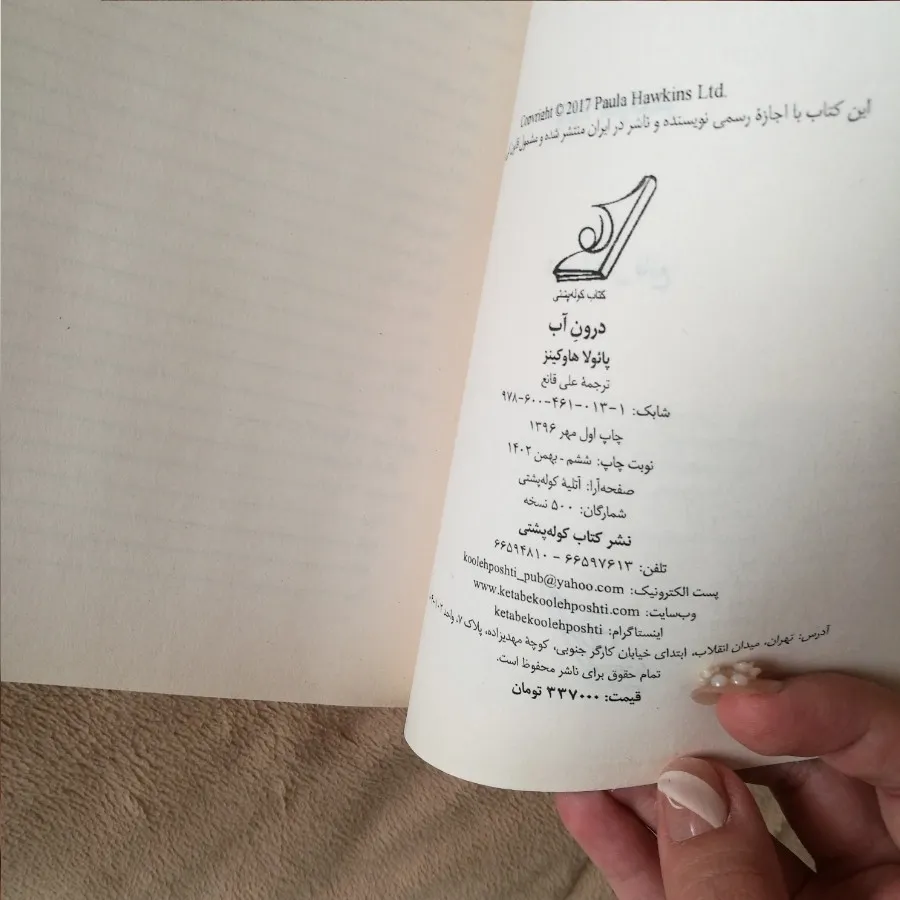 Copyright © 2017 Paula Hawkins Ltd.
این کتاب با اجازهٔ رسمی نویسنده و ناشر در ایران منتشر شده و مشمول
کتاب کوله‌پشتی
درونِ آب
پائولا هاوکینز
ترجمهٔ علی قانع
شابک: ۱-۰۱۳-۴۶۱-۶۰۰-۹۷۸
چاپ اول مهر ۱۳۹۶
نوبت چاپ: ششم - بهمن ۱۴۰۲
صفحه‌آرا: آتلیهٔ کوله‌پشتی
شمارگان: ۵۰۰ نسخه
نشر کتاب کوله‌پشتی
تلفن: ۶۶۵۹۷۶۱۳ - ۶۶۵۹۴۸۱۰
پست الکترونیک: koolehposhti_pub@yahoo.com
وب‌سایت: www.ketabekoolehposhti.com
اینستاگرام: ketabekoolehposhti
آدرس: تهران، میدان انقلاب، ابتدای خیابان کارگر جنوبی، کوچهٔ مهدیزاده، پلاک ۷، واحد
تمام حقوق برای ناشر محفوظ است.
قیمت: ۳۳۷۰۰۰ تومان